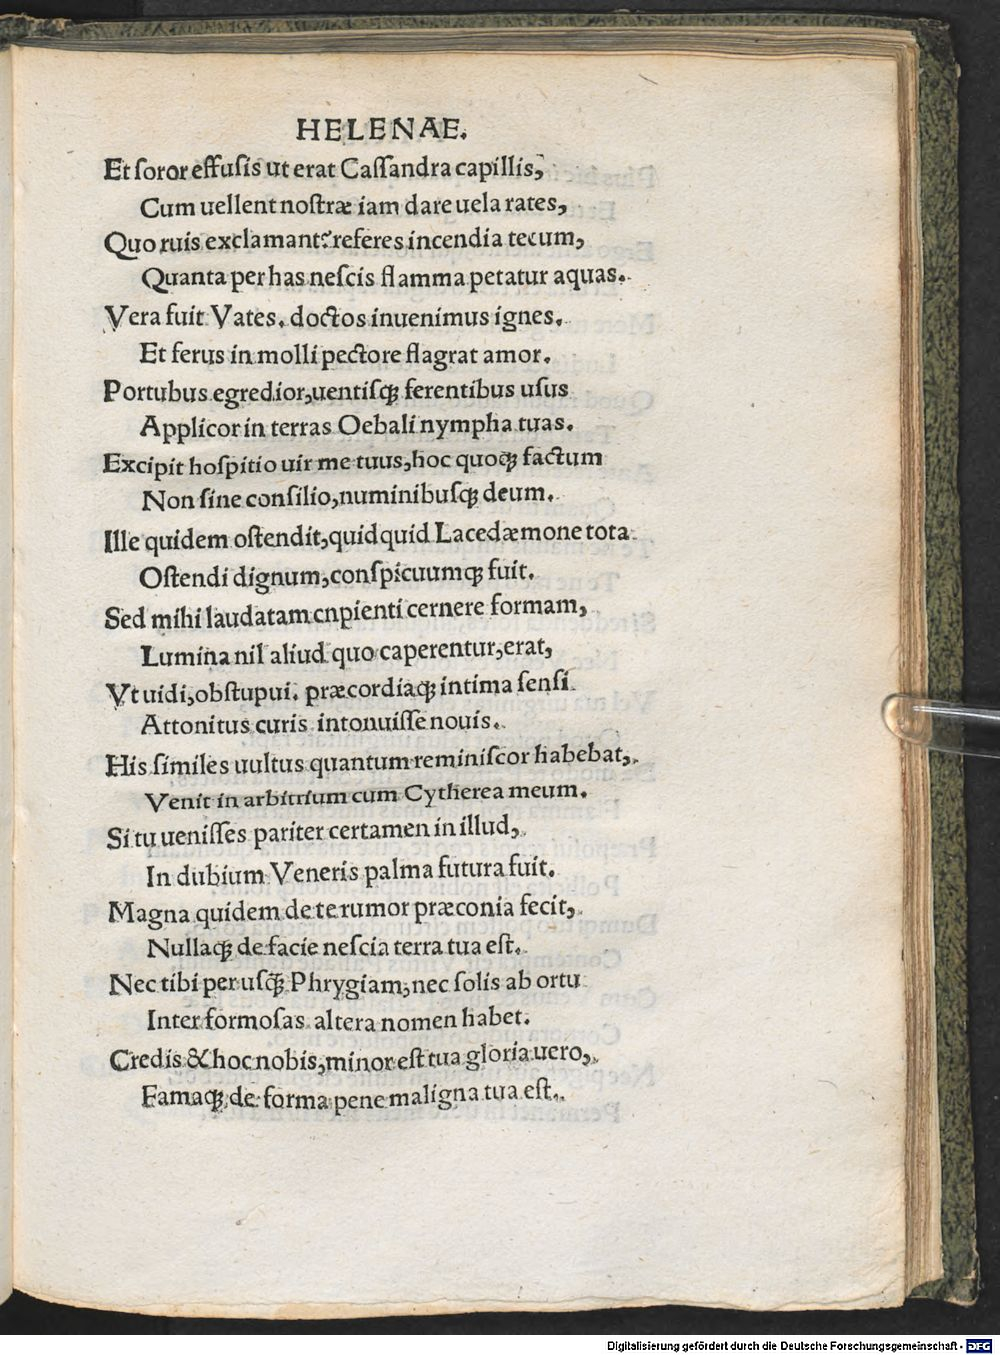 HELENAE.
Et ſoror effuſis ut erat Caſſandra capillis,
Cum uellent noſtræ iam dare uela rates,
Quo ruis exclamant? referes incendia tecum,
Quanta per has neſcis flamma petatur aquas.
Vera fuit Vates. doctos inuenimus ignes.
Et ferus in molli pectore flagrat amor.
Portubus egredior, uentiſq; ferentibus uſus
Applicor in terras Oebali nympha tuas.
Excipit hoſpitio uir me tuus, hoc quoq; factum
Non ſine conſilio, numinibuſq; deum.
Ille quidem oſtendit, quidquid Lacedæmone tota
Oſtendi dignum, conſpicuumq; fuit.
Sed mihi laudatam cnpienti cernere formam,
Lumina nil aliud quo caperentur, erat,
Vt uidi, obſtupui. præcordiaq; intima ſenſi
Attonitus curis intonuiſſe nouis.
His ſimiles uultus quantum reminiſcor habebat,
Venit in arbitrium cum Cytherea meum.
Si tu ueniſſes pariter certamen in illud,
In dubium Veneris palma futura fuit.
Magna quidem de te rumor præconia fecit,
Nullaq; de facie neſcia terra tua eſt.
Nec tibi per uſq; Phrygiam, nec ſolis ab ortu
Inter formoſas altera nomen habet.
Credis & hoc nobis, minor eſt tua gloria uero,
Famaq; de forma pene maligna tua eſt.
Digitalisierung gefördert durch die Deutsche Forschungsgemeinschaft - DFG